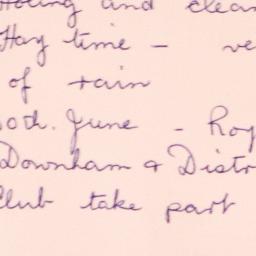 Hoeing and clean
Hay time - ve
of rain
30th. June - Roy
Downham & Distr
Club take part